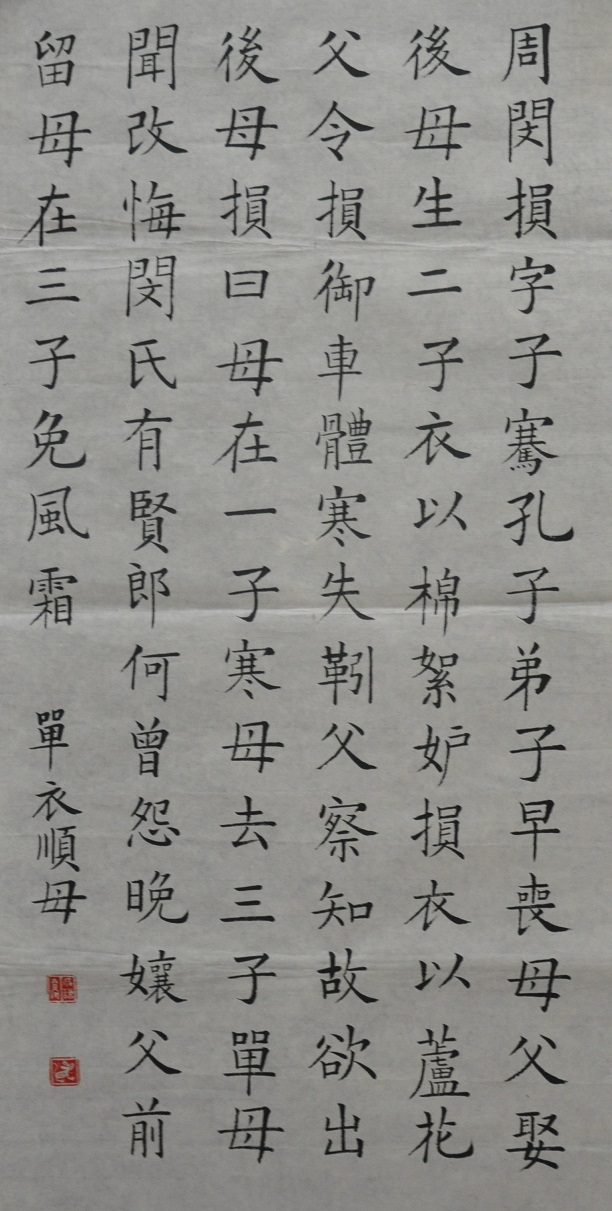 周閔損字子騫孔子弟子早喪母父娶
後母生二子衣以棉絮妒損衣以蘆花
父令損御車體寒失靷父察知故欲出
後母損曰母在一子寒母去三子單母
聞改悔閔氏有賢郎何曾怨晚孃父前
留母在三子免風霜
單衣順母